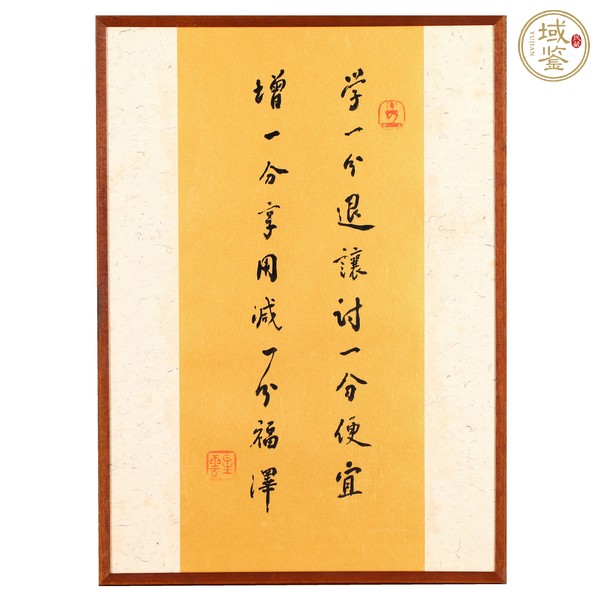 学一分退讓討一分便宜
增一分享用減一分福澤
星雲
域鉴
YUJIAN